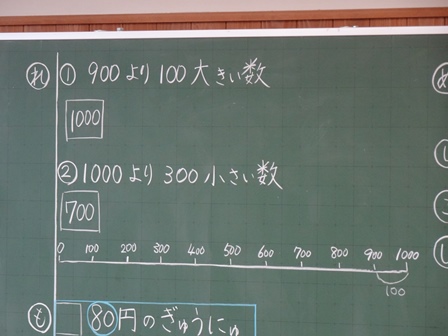 れ ① 900より100大きい数
1000
② 1000より300小さい数
700
0 100 200 300 400 500 600 700 800 900 1000
100
も 80円のぎゅうにゅ